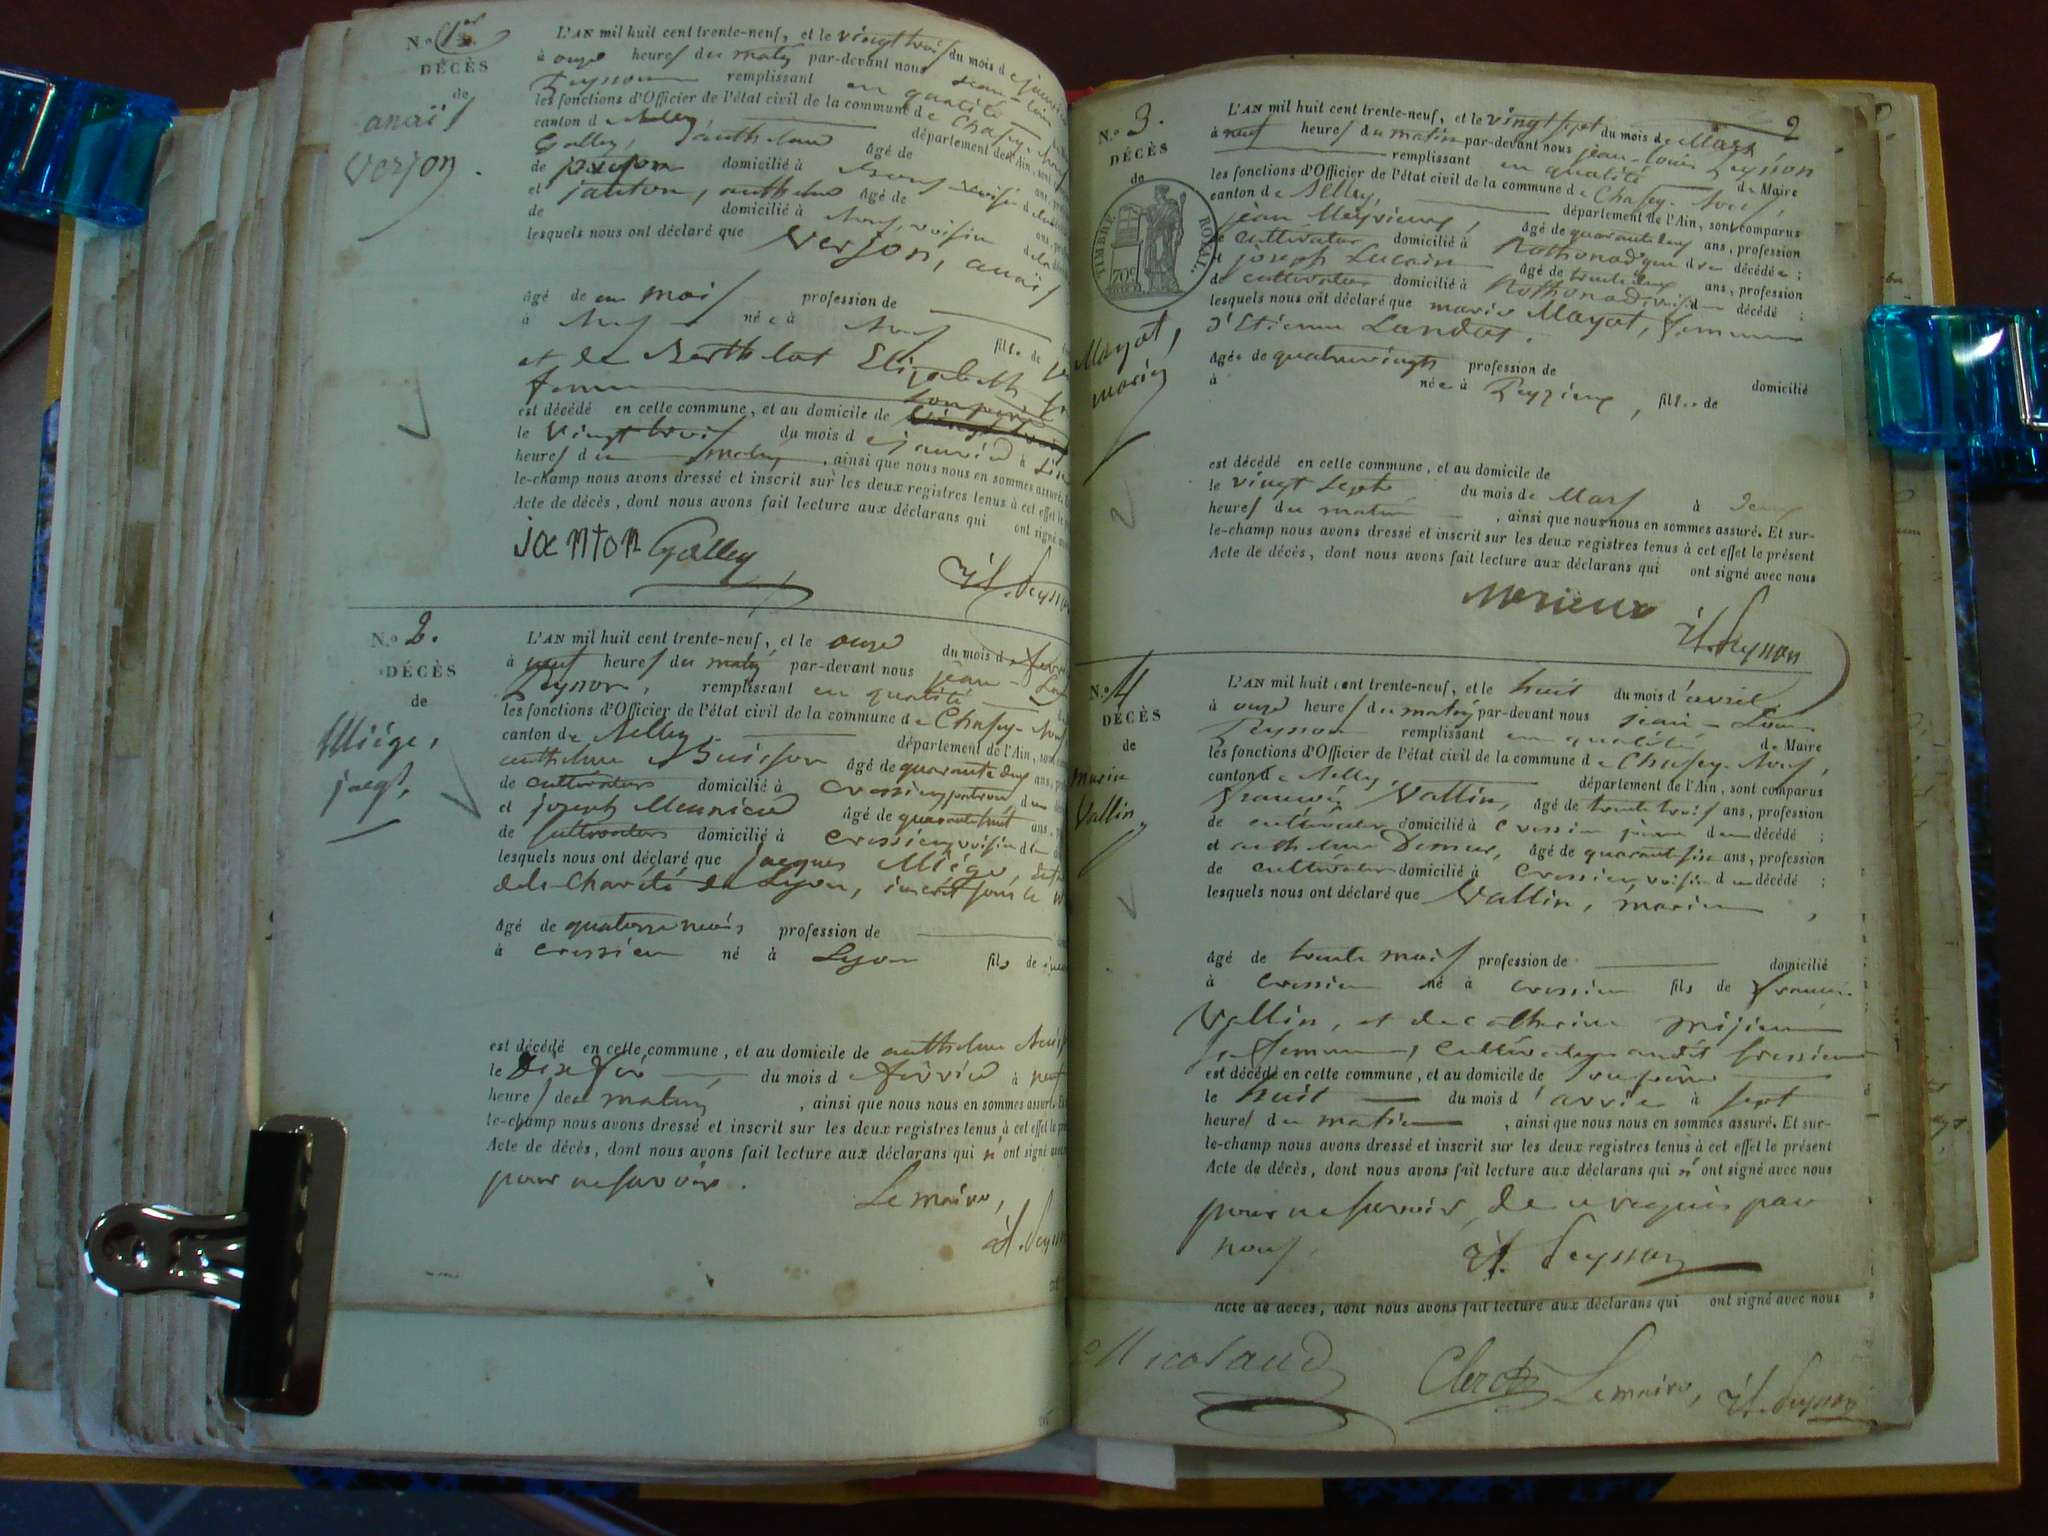 N.o 1er
DÉCÈS
de
anaïs
Verjon.
L'AN mil huit cent trente-neuf, et le vingt trois du mois de
à onze heures du matin par-devant nous jean-Louis
Peysson remplissant en qualité
les fonctions d'Officier de l'état civil de la commune de Chazey-
canton de Belley, département de l'Ain, sont
Galley, anthelme âgé de
de domicilié à voisin
et janton, anthelme âgé de ans,
de domicilié à voisin
lesquels nous ont déclaré que Verjon, anaïs
âgé de un mois profession de
à né e à fille de
et de Berthelot Elizabeth
femme
est décédé en cette commune, et au domicile de son père
le vingt trois du mois de janvier à
heures du matin, ainsi que nous nous en sommes assuré.
le-champ nous avons dressé et inscrit sur les deux registres tenus à cet effet le
Acte de décès, dont nous avons fait lecture aux déclarans qui ont signé
janton Galley
J.L. Peysson
N.o 2.
DÉCÈS
de
Miége,
jacqs,
L'AN mil huit cent trente-neuf, et le onze du mois de
à neuf heures du matin par-devant nous jean-
Peysson, remplissant en qualité
les fonctions d'Officier de l'état civil de la commune de Chazey-
canton de Belley, département de l'Ain,
anthelme Buisson âgé de quarante deux ans,
de cultivateur domicilié à Cressieu, patron du
et joseph Meunier âgé de quarante huit ans,
de cultivateur domicilié à Cressieu, voisin du
lesquels nous ont déclaré que jacques Miége,
de la Charité de Lyon, inscrit sous le
âgé de quatorze mois profession de
à Cressieu né à Lyon fils de
est décédé en cette commune, et au domicile de anthelme
le du mois de février à
heures du matin, ainsi que nous nous en sommes assuré.
le-champ nous avons dressé et inscrit sur les deux registres tenus à cet effet le
Acte de décès, dont nous avons fait lecture aux déclarans qui n'ont signé
pour ne savoir.
Le maire,
J.L. Peysson
2
N.o 3.
DÉCÈS
de
TIMBRE ROYAL.
70c
Mayat,
marie
L'AN mil huit cent trente-neuf, et le vingt sept du mois de Mars
à neuf heures du matin par-devant nous jean-Louis Peysson
remplissant en qualité de Maire
les fonctions d'Officier de l'état civil de la commune de Chazey-
canton de Belley, département de l'Ain, sont comparus
jean Meyrieux, âgé de quarante deux ans, profession
de cultivateur domicilié à Rothonod décédée ;
et joseph Lucain âgé de trente deux ans, profession
de cultivateur domicilié à Rothonod, décédé ;
lesquels nous ont déclaré que marie Mayat, femme
d'Etienne Landot.
âgée de quatrevingts profession de domicilié
à née à Peyzieux, fille de
est décédé en cette commune, et au domicile de
le vingt sept du mois de Mars à deux
heures du matin, ainsi que nous nous en sommes assuré. Et sur-
le-champ nous avons dressé et inscrit sur les deux registres tenus à cet effet le présent
Acte de décès, dont nous avons fait lecture aux déclarans qui ont signé avec nous
Merieux
J.L. Peysson
N.o 4
DÉCÈS
de
marin
Vallin.
L'AN mil huit cent trente-neuf, et le huit du mois d'avril,
à onze heures du matin par-devant nous jean-Louis
Peysson remplissant en qualité de Maire
les fonctions d'Officier de l'état civil de la commune de Chazey-
canton de Belley, département de l'Ain, sont comparus
françois Vallin, âgé de trente trois ans, profession
de cultivateur domicilié à Cressieu père du décédé ;
et anthelme âgé de quarante six ans, profession
de cultivateur domicilié à Cressieu, voisin du décédé ;
lesquels nous ont déclaré que Vallin, marin,
âgé de trente mois profession de domicilié
à Cressieu né à Cressieu fils de françois
Vallin, et de catherine
sa femme, cultivateurs audit Cressieu
est décédé en cette commune, et au domicile de son père
le huit du mois d'avril à sept
heures du matin, ainsi que nous nous en sommes assuré. Et sur-
le-champ nous avons dressé et inscrit sur les deux registres tenus à cet effet le présent
Acte de décès, dont nous avons fait lecture aux déclarans qui n'ont signé avec nous
pour ne savoir, de ce requis par
nous.
J.L. Peysson
Acte de décès, dont nous avons fait lecture aux déclarans qui ont signé avec nous
Nicolaud Clerc Le maire, J.L. Peysson